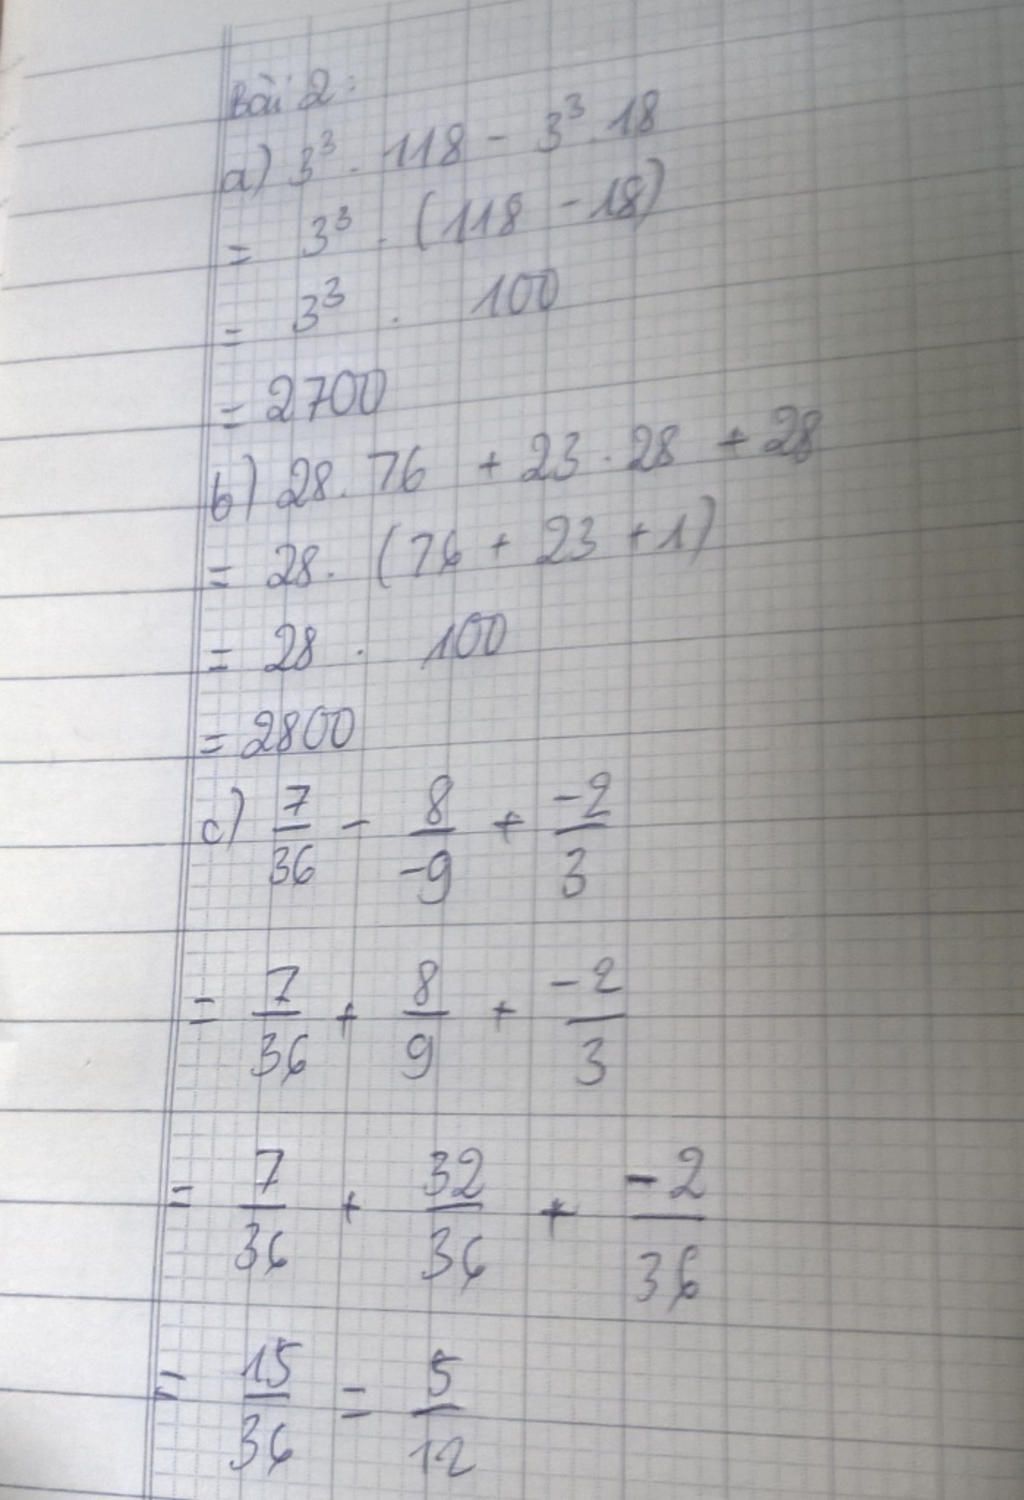 Bài 2:
a) 3³ . 118 - 3³ . 18
= 3³ . (118 - 18)
= 3³ . 100
= 2700
b) 28 . 76 + 23 . 28 + 28
= 28 . (76 + 23 + 1)
= 28 . 100
= 2800
c) 7/36 - 8/-9 + -2/3
= 7/36 + 8/9 + -2/3
= 7/36 + 32/36 + -2/36
= 15/36 = 5/12